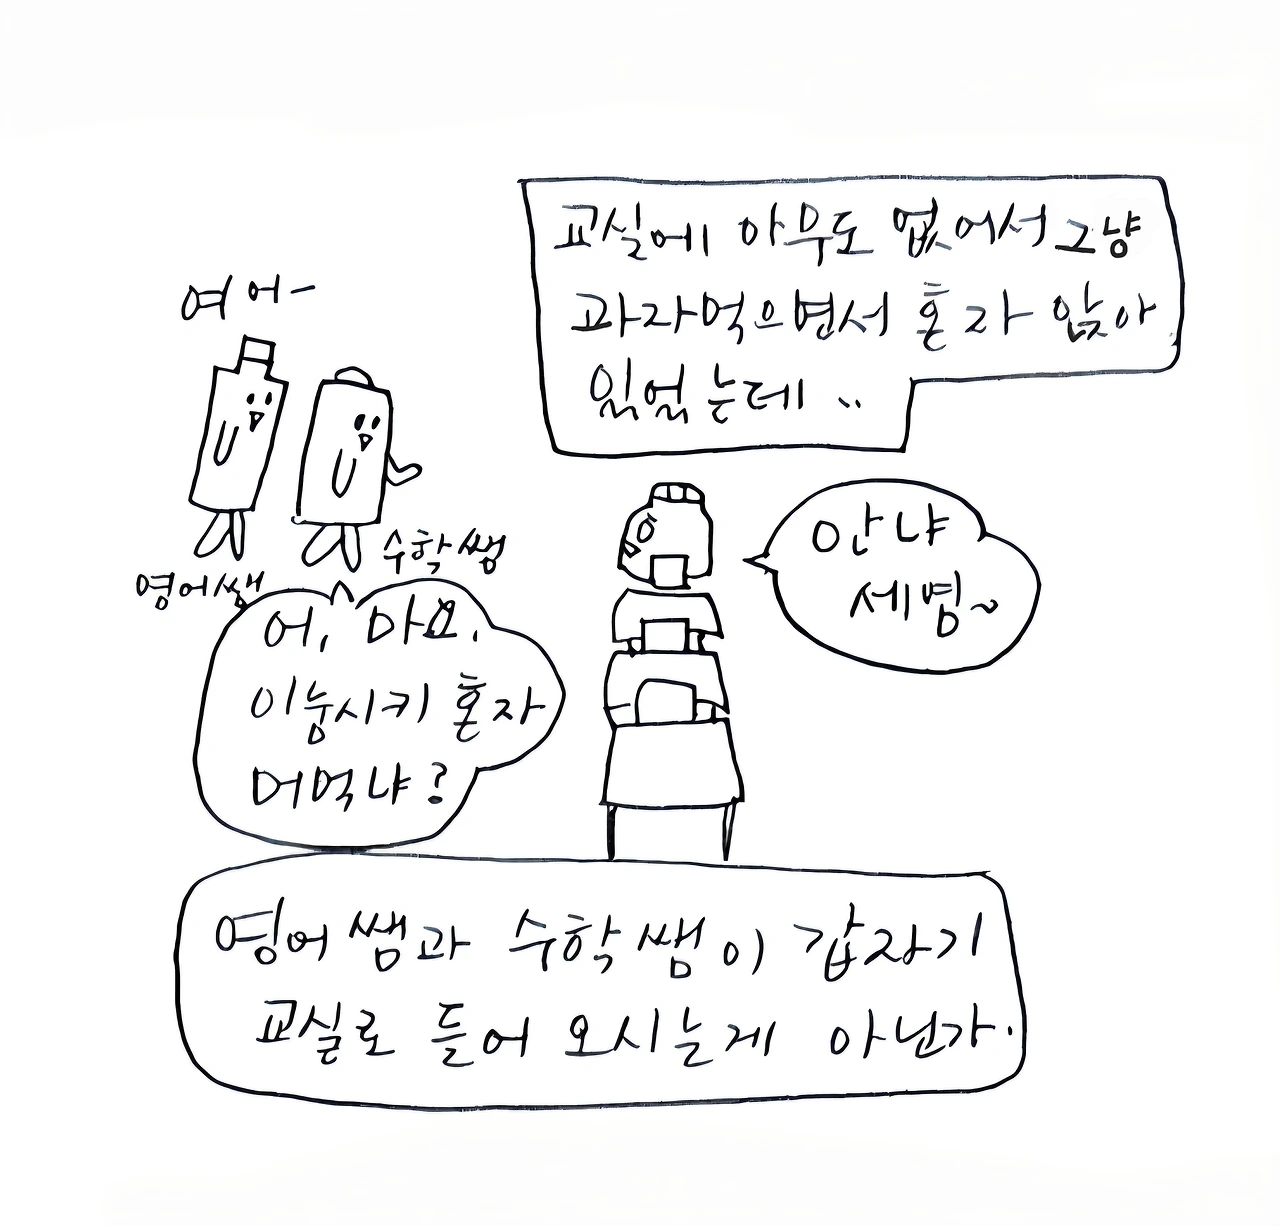 교실에 아무도 없어서 그냥
과자먹으면서 혼자 앉아
있었는데 ..
여어-
영어쌤
수학쌤
안냐
세염~
어, 마요.
이눔시키 혼자
머먹냐?
영어쌤과 수학쌤이 갑자기
교실로 들어 오시는게 아닌가.